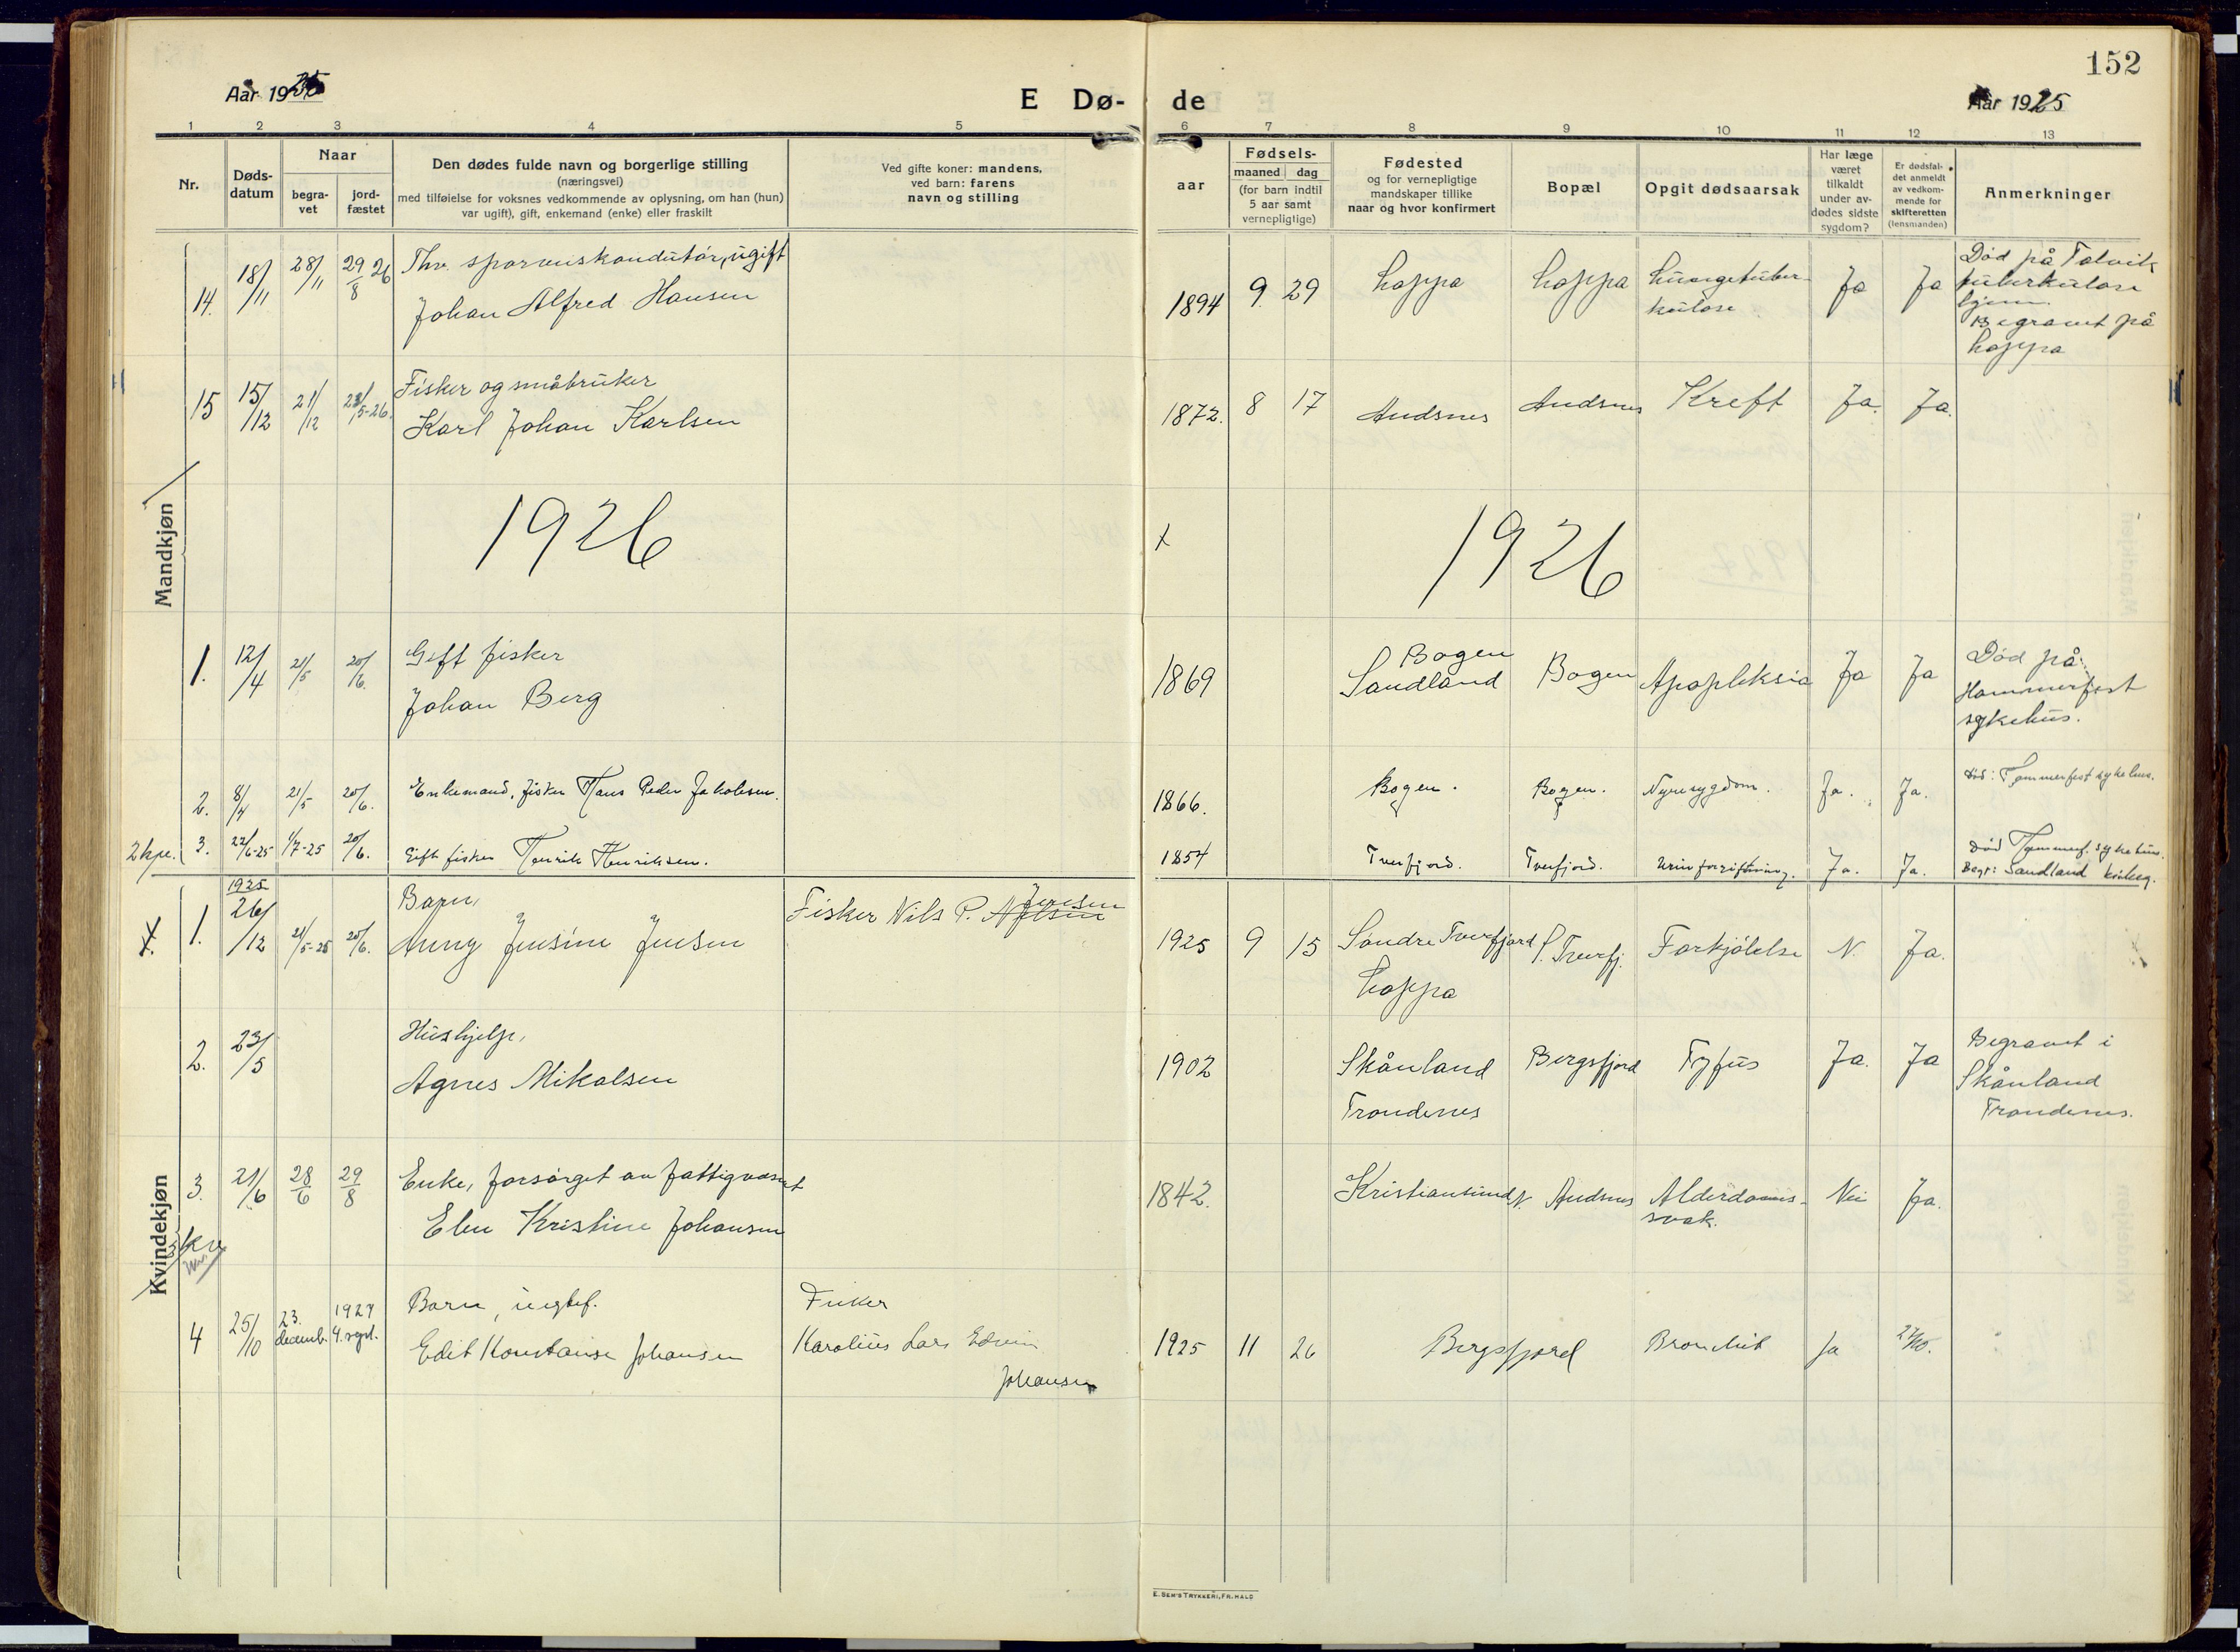 152
Aar 1925
E Dø-
de
Aar 1925
1 2 3 4 5 6 7 8 9 10 11 12 13
Nr.
Døds-
datum
Naar
begra-
vet
jord-
fæstet
Den dødes fulde navn og borgerlige stilling
(næringsvei)
med tilføielse for voksnes vedkommende av oplysning, om han (hun)
var ugift), gift, enkemand (enke) eller fraskilt
Ved gifte koner: mandens,
ved barn: farens
navn og stilling
aar
Fødsels-
maaned dag
(for barn indtil
5 aar samt
vernepligtige)
Fødested
og for vernepligtige
mandskaper tillike
naar og hvor konfirmert
Bopæl
Opgit dødsaarsak
Har læge
været
tilkaldt
under av-
dødes sidste
sygdom?
Er dødsfal-
det anmeldt
av vedkom-
mende for
skifteretten
(lensmanden)
Anmerkninger
Mandkjøn
14. 18/11 28/11 29/8 26
ugift
Johan Alfred Hansen
1894 9. 29 Loppa Loppa Lungetuber-
kulose
Ja Ja
Død på Talvik
tuberkulose
hjem.
Begravet på
Loppa
15 15/12 21/12 23/5-26.
Fisker og småbruker
Karl Johan Karlsen
1872. 8 17 Andsnes Andsnes Kreft Ja. Ja.
1926
x
1926
1. 12/4 21/5 20/6.
Gift fisker
Johan Berg
1869 Bogen
Sandland Bogen Apopleksia Ja Ja
Død på
Hammerfest
sykehus.
2. 8/4 21/5 20/6.
Enkemand, fisker Hans Peder Jakobsen.
1866. Bogen. Bogen. Nyresygdom. Ja. Ja.
Død: Hammerfest sykehus.
2 kpe. 3. 22/6-25 1/7-25 20/6.
Gift fisker Henrik Henriksen.
1854 Tverfjord. Tverfjord. Urinforgiftning. Ja. Ja.
Død Hammerf. sykehus.
Begr: Sandland kirkeg.
Kvindekjøn
1925
x. 1. 26/12 21/5-26 20/6.
Barn,
Anny Jensine Jensen
Fisker Nils P. Nilsen Jensen
1925 9 15 Söndre Tverfjord
Loppa
S. Tverfj. Forkjölelse N. Ja.
2. 23/5
Hushjelp,
Agnes Mikalsen
1902 Skånland
Trondenes
Bergsfjord Tyfus Ja. Ja
Begravet i
Skånland
Trondenes.
3. 21/6 28/6 29/8
Enke, forsörget av fattigvæsnet
Elen Kristine Johansen
1842. Kristiansund N. Andsnes Alderdoms-
svak.
Nei Ja.
4 25/10 23.
decemb. 1927
4. sept.
Barn, uegtef.
Edit Konstanse Johansen
Fisker
Karolius Lars Edvin
Johansen
1925 11 26 Bergsfjord Bronchit Ja 27/10.
E. Sem's Trykkeri, Fr.hald